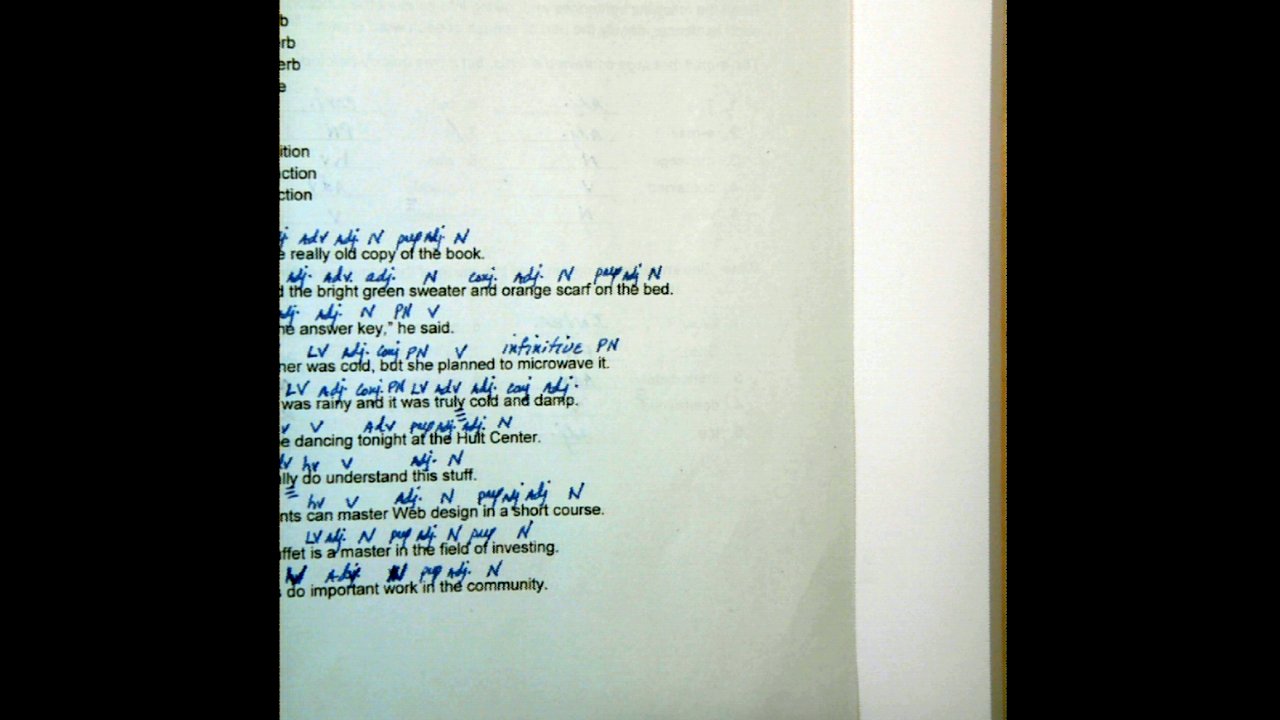 b
rb
erb
e
ition
ction
ction
Adv Adj N prep Adj. N
really old copy of the book.
Adj. Adv. adj. N conj. Adj. N prep Adj N
the bright green sweater and orange scarf on the bed.
Adj. N PN V
answer key," he said.
LV Adj. Conj PN V infinitive PN
her was cold, but she planned to microwave it.
LV Adj. Conj. PN LV Adv Adj. conj Adj.
was rainy and it was truly cold and damp.
V Adv prep Adj. Adj. N
e dancing tonight at the Hult Center.
hv V Adj. N
lly do understand this stuff.
hv V Adj. N prep Adj Adj N
nts can master Web design in a short course.
LV Adj. N prep Adj. N prep N
ffet is a master in the field of investing.
N prep Adj. N
do important work in the community.